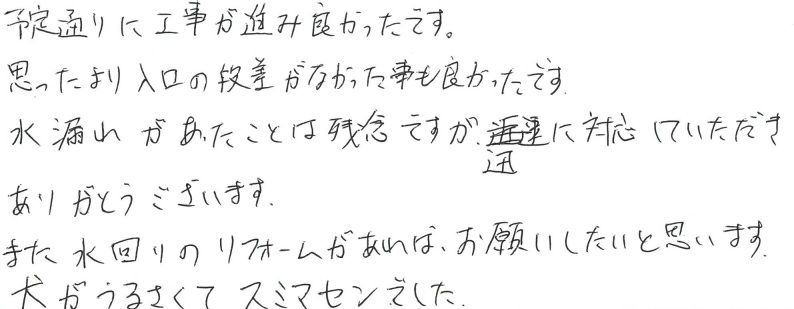 予定通りに工事が進み良かったです。
思ったより入口の段差がなかった事も良かったです.
水漏れがあったことは残念ですが、迅速に対応していただき
ありがとうございます.
また水回りのリフォームがあれば、お願いしたいと思います.
犬がうるさくてスミマセンでした.